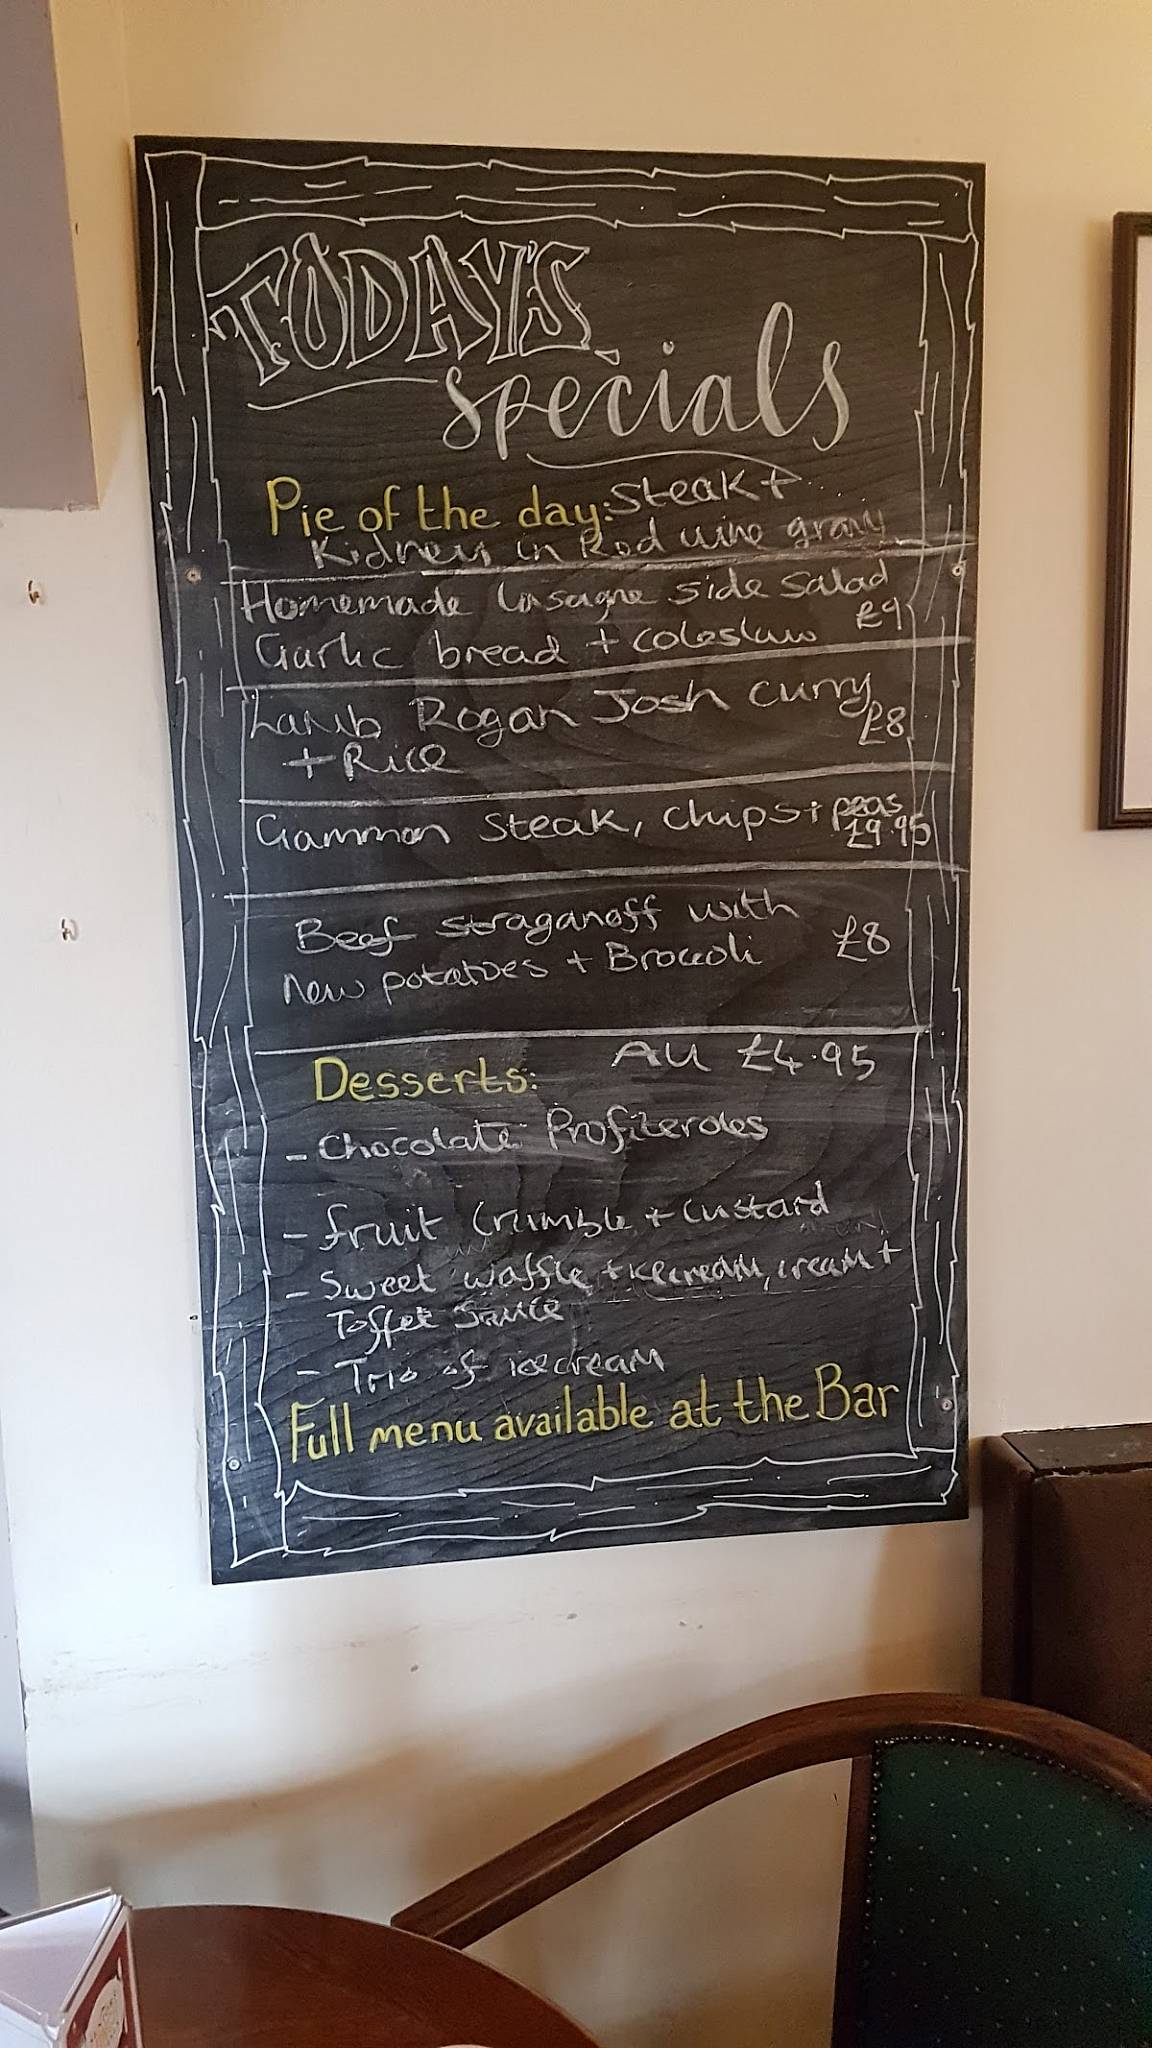 TODAY'S
specials
Pie of the day: Steak +
Kidney in Red wine gravy
Homemade lasagne side salad
Garlic bread + coleslaw £9
Lamb Rogan Josh Curry
+ Rice £8
Gammon Steak, chips + peas
£9.95
Beef straganoff with
New potatoes + Broccoli £8
Desserts: All £4.95
- Chocolate Profiteroles
- fruit Crumble + custard
- Sweet waffle + icecream, cream +
Toffee Sauce
- Trio of icecream
Full menu available at the Bar